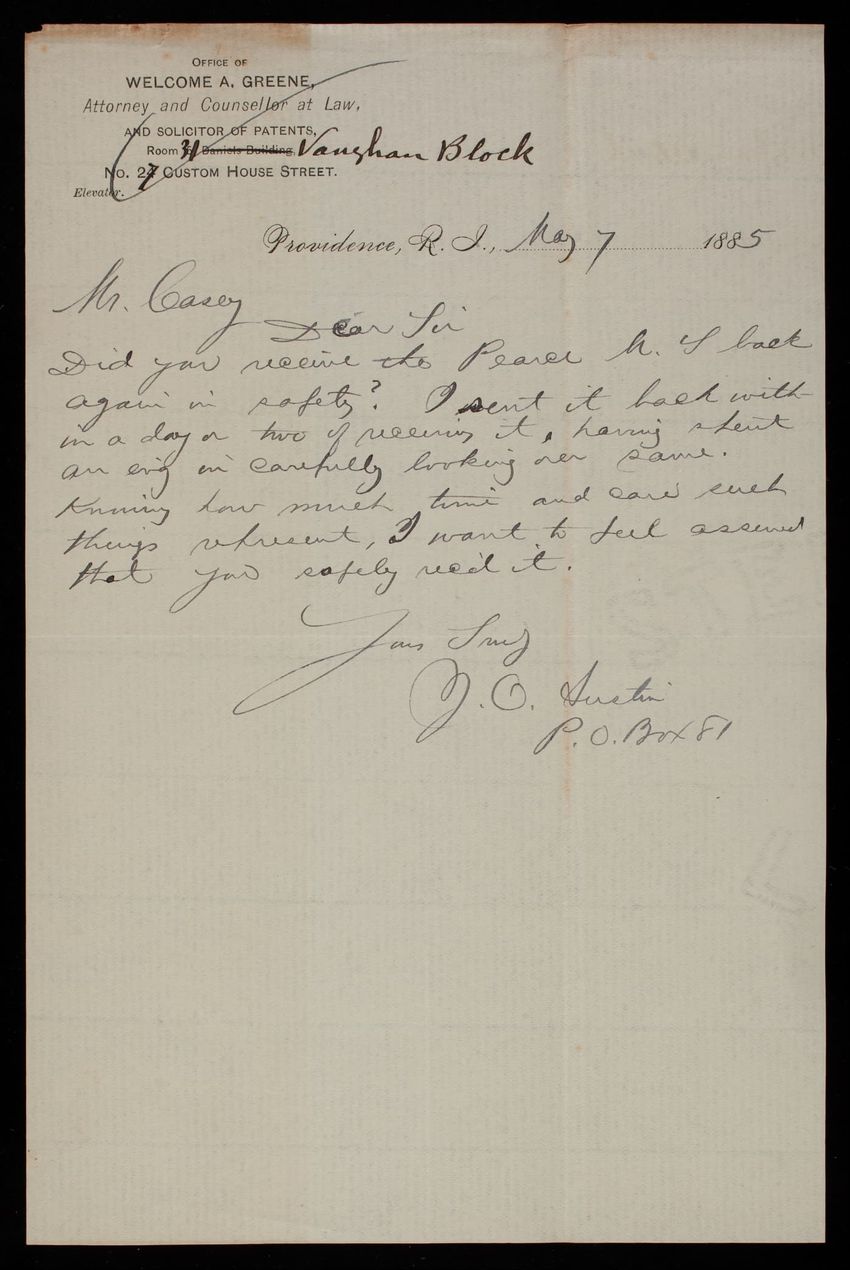 OFFICE OF
WELCOME A. GREENE,
Attorney and Counsellor at Law,
AND SOLICITOR OF PATENTS,
Room 31 Daniels Building, Vaughan Block
No. 27 CUSTOM HOUSE STREET.
Elevator.
Providence, R. I., May 7 1885
Mr. Casey
Dear Sir
Did you receive the Pearce M. S back
again in safety? I sent it back with-
in a day or two of receiving it, having spent
an ev'g in carefully looking over same.
Knowing how much time and care such
things represent, I want to feel assured
that you safely rec'd it.
Yours Truly
J. O. Austin
P. O. Box 81